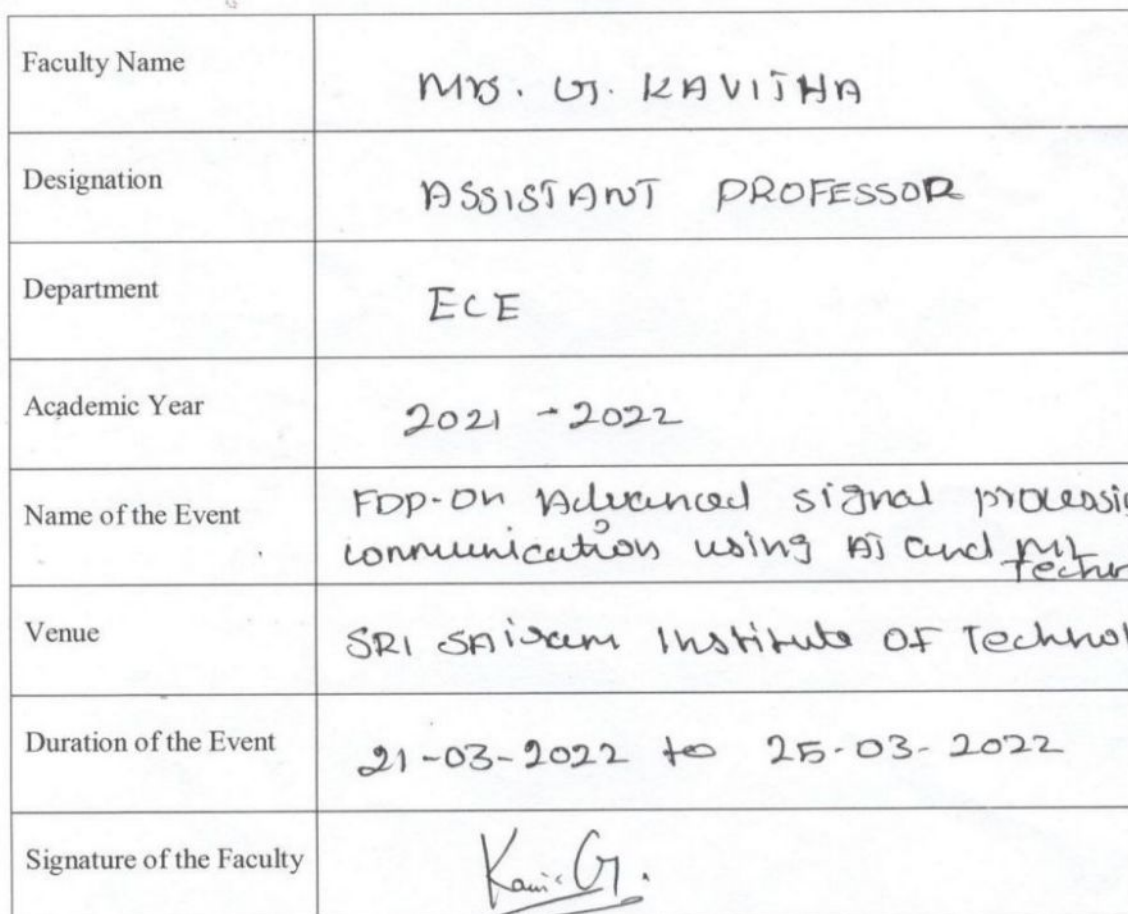 Faculty Name Mrs. G. KAVITHA
Designation ASSISTANT PROFESSOR
Department ECE
Academic Year 2021 - 2022
Name of the Event FDP-on Advanced signal processi
communication using AI and ML
Techn
Venue SRI SAiram Institute OF Technol
Duration of the Event 21-03-2022 to 25-03-2022
Signature of the Faculty Kavi. G.